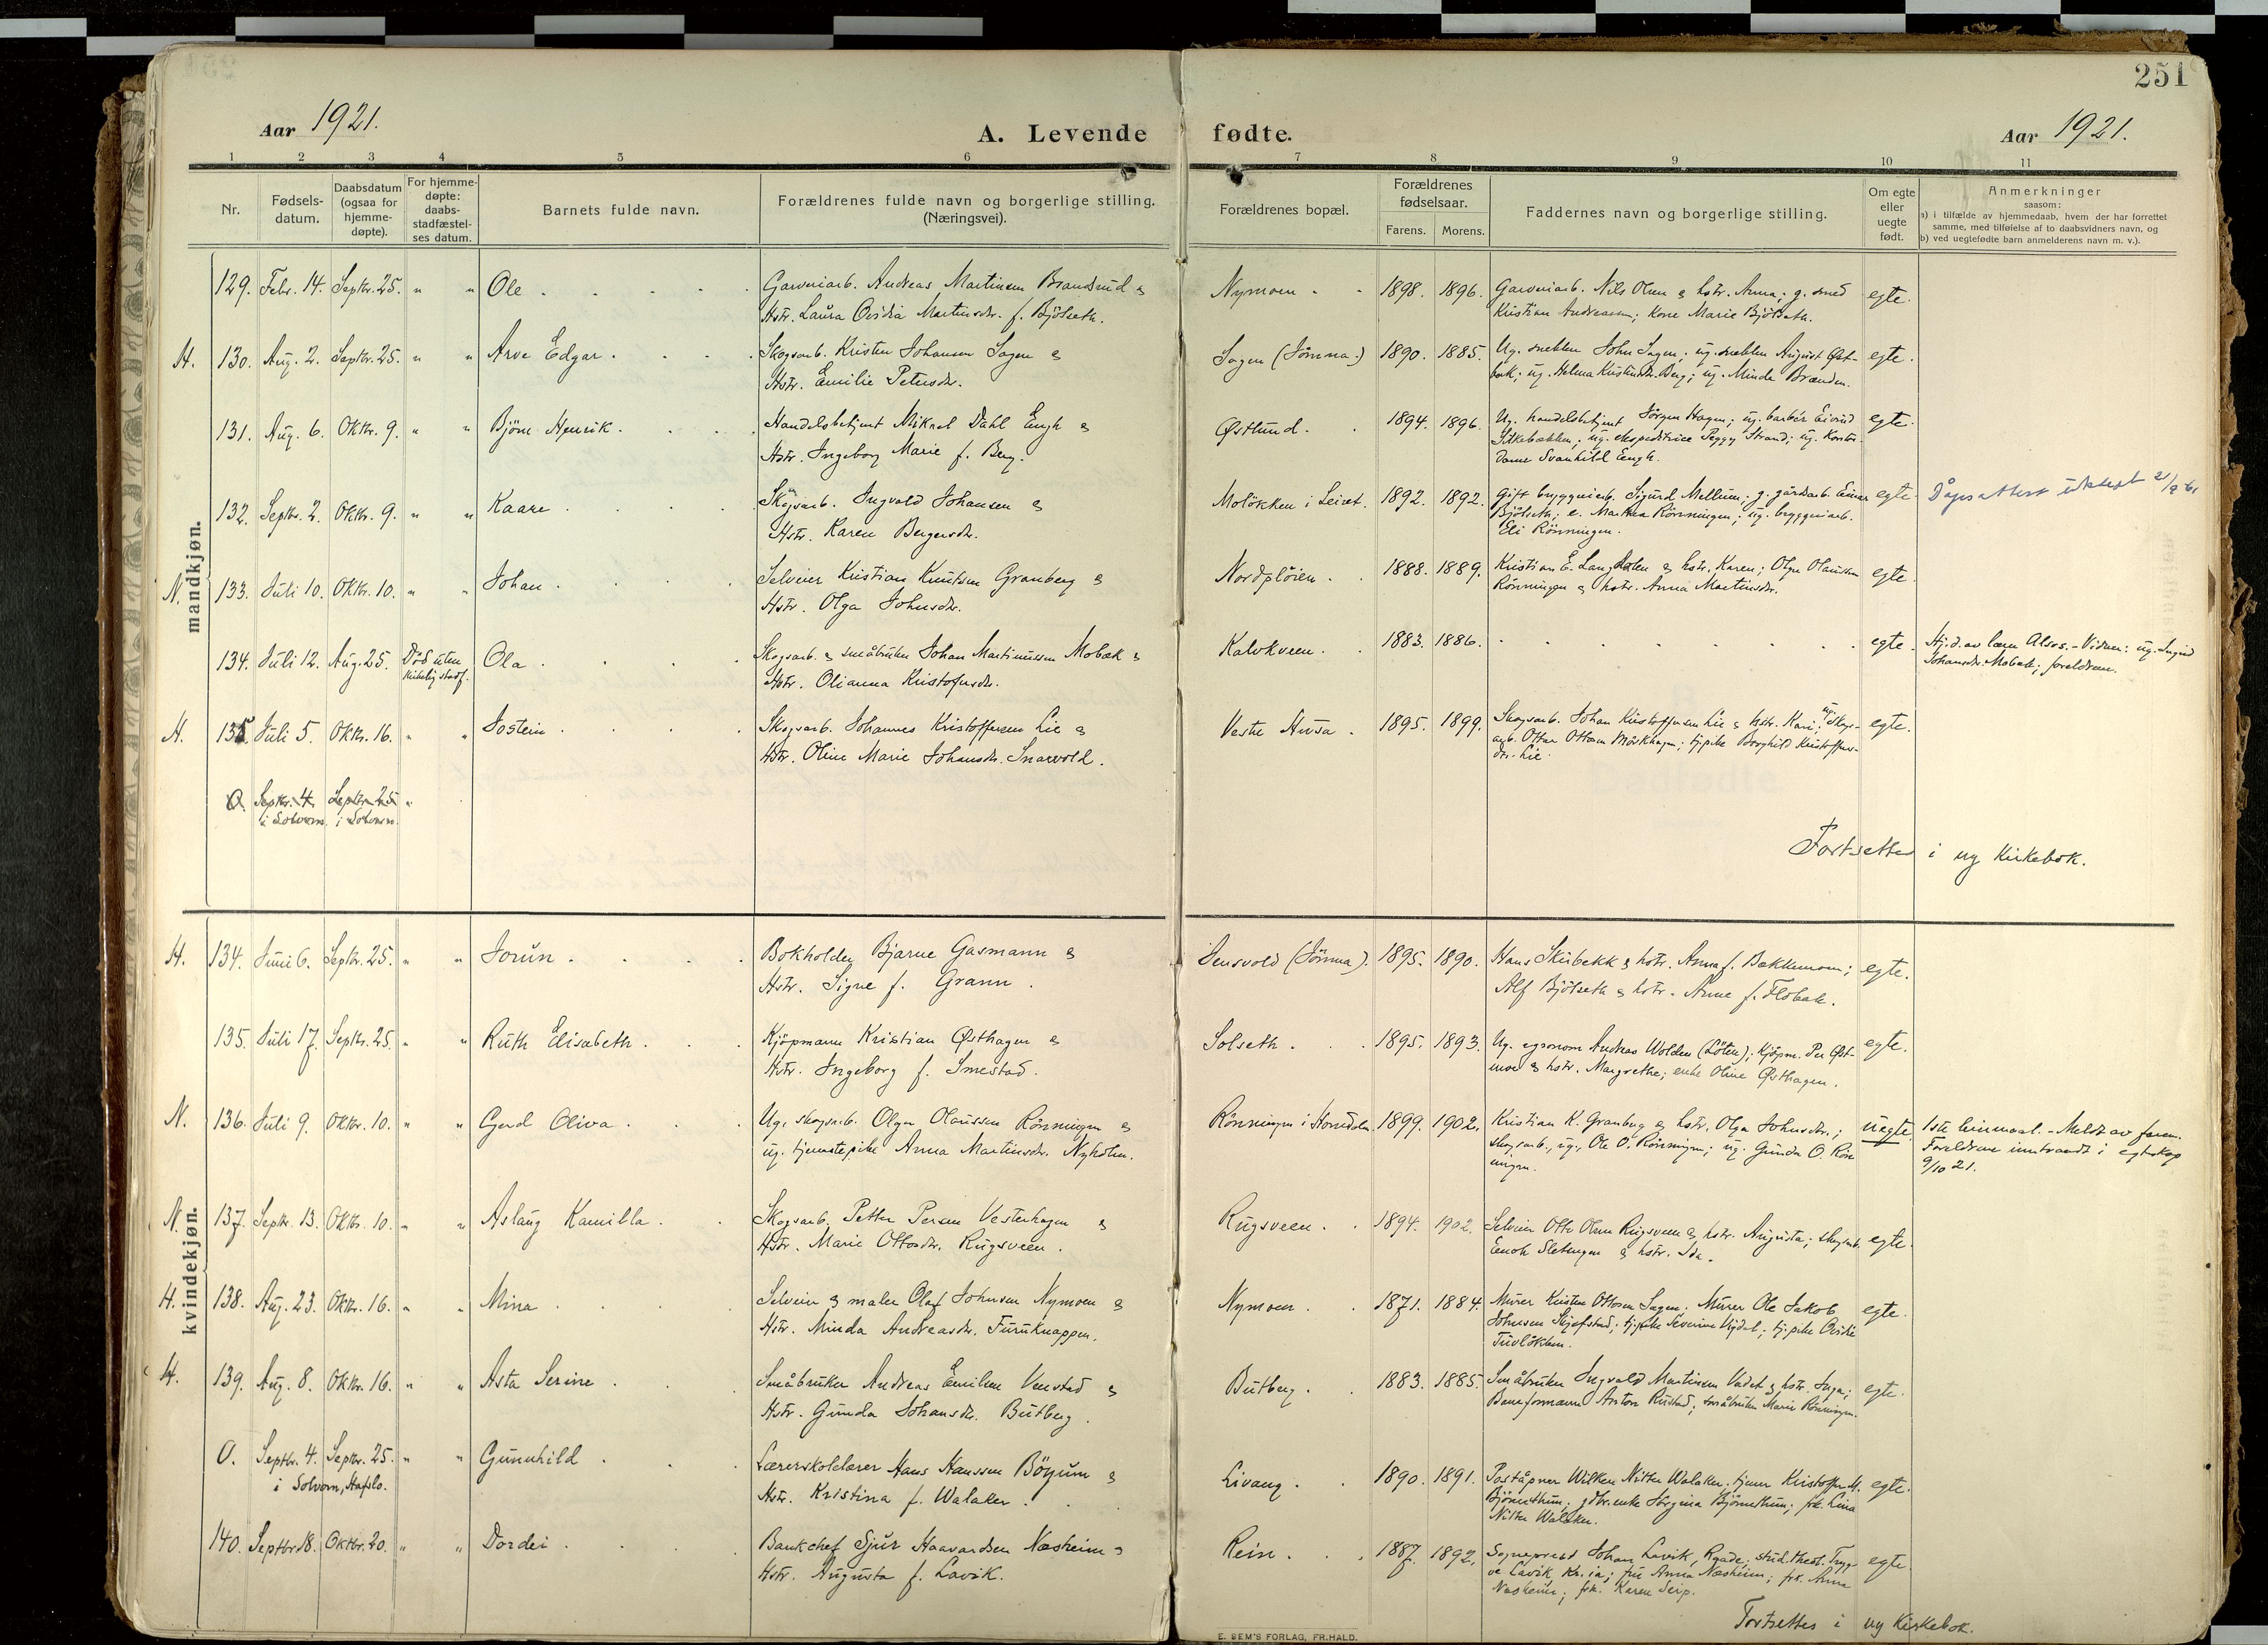 251
Aar 1921.
A. Levende fødte.
Aar 1921.
1 2 3 4 5 6 7 8 9 10 11
Nr.
Fødsels-
datum.
Daabsdatum
(ogsaa for
hjemme-
døpte).
For hjemme-
døpte:
daabs-
stadfæstel-
ses datum.
Barnets fulde navn.
Forældrenes fulde navn og borgerlige stilling.
(Næringsvei).
Forældrenes bopæl.
Forældrenes
fødselsaar.
Farens. Morens.
Faddernes navn og borgerlige stilling.
Om egte
eller
uegte
født.
Anmerkninger
saasom:
a) i tilfælde av hjemmedaab, hvem der har forrettet
samme, med tilføielse af to daabsvidners navn, og
b) ved uegtefødte barn anmelderens navn m. v.).
mandkjøn.
129. Febr. 14. Septbr. 25. " " Ole . Garveriarb. Andreas Martinsen Brandsrud &
Hstr. Laura Ovidia Martinsdr. f. Bjölseth.
Nymoen 1898. 1896. Garveriarb. Nils Olsen & hstr. Anna; g. smed
Kristian Andreassen; kone Marie Bjölseth.
egte.
H. 130. Aug. 2. Septbr. 25. " " Arve Edgar . Skogsarb. Kristen Johansen Sagen &
Hstr. Emilie Petersdr.
Sagen (Jömna) 1890. 1885. Ug. snekker John Sagen; ug. snekker August Øst-
bak; ug. Helma Kristiansdr. Berg; ug. Minda Brænden.
egte.
131. Aug. 6. Oktbr. 9. " " Björn Henrik . Handelsbetjent Mikael Dahl Engh &
Hstr. Ingeborg Marie f. Berg.
Østlund . 1894. 1896. Ug. handelsbetjent Jörgen Hagen; ug. barbér Eivind
Silkebækken; ug. ekspeditrice Peggy Strand; ug. kontor-
dame Svanhild Engh.
egte.
132. Septbr. 2. Oktbr. 9. " " Kaare . Skogsarb. Ingvald Johansen &
Hstr. Karen Bergersdr.
Molökken i Leiret. 1892. 1892. Gift bryggeriarb. Sigurd Mellum; g. gårdsarb. Einar
Bjölseth; e. Martha Rönningen; ug. bryggeriarb.
Eli Rönningen.
egte. Dåpsattest utstedt
N. 133. Juli 10. Oktbr. 10. " " Johan . Selveier Kristian Knutsen Granberg &
Hstr. Olga Johnsdr.
Nordpløien . 1888. 1889. Kristian E. Langdalen & hstr. Karen; Olger Olaussen
Rönningen & hstr. Anna Martinsdr.
egte.
134. Juli 12. Aug. 25. Död uten
kirkelig stadf.
Ola . Skogsarb. & småbruker Johan Martinussen Mobæk &
Hstr. Olianna Kristofersdr.
Kalvkveen . 1883. 1886. egte. Hj.d. av lærer Alsos. - Vidner: ug. Ingrid
Johansdr. Mobæk; foreldrene.
H. 135. Juli 5. Oktbr. 16. " " Jostein . Skogsarb. Johannes Kristoffersen Lie &
Hstr. Oline Marie Johansdr. Snarvold.
Vestre Husa . 1895. 1899. Skogsarb. Johan Kristoffersen Lie & hstr. Kari; ug. skogs-
arb. Ottar Ottosen Mörkhagen; tj.pike Borghild Kristoffers-
dr. Lie.
egte.
O. Septbr. 4. Septbr. 25 "
i Solvorn. i Solvorn.
Fortsettes i ny kirkebok.
kvindekjøn.
H. 134. Juni 6. Septbr. 25. " " Jorun . Bokholder Bjarne Gasmann &
Hstr. Signe f. Grann.
Sensvold (Jömna). 1895. 1890. Hans Skirbekk & hstr. Anna f. Bakkemoen;
Alf Bjölseth & hstr. Anne f. Flobak.
egte.
135. Juli 17. Septbr. 25. " " Ruth Elisabeth . Kjöpmann Kristian Østhagen &
Hstr. Ingeborg f. Smestad.
Solseth . 1895. 1893. Ug. agronom Andreas Wolden (Löten); kjöpm. Per Øst-
moe & hstr. Margrethe; enke Oline Østhagen.
egte.
N. 136. Juli 9. Oktbr. 10. " " Gerd Oliva . Ug. skogsarb. Olger Olaussen Rönningen &
ug. tjenestepike Anna Martinsdr. Nyholm.
Rönningen i 1899. 1902. Kristian K. Granberg & hstr. Olga Johnsdr.;
skogsarb., ug., Ole O. Rönningen; ug. Gunda O. Rön-
ningen.
uegte 1ste leiermaal. - Meldt av faren.
Foreldrene inntraadt i egteskap
9/10 21.
N. 137. Septbr. 13. Oktbr. 10. " " Aslaug Kamilla . Skogsarb. Petter Persen Vesterhagen &
Hstr. Marie Ottosdr. Rugsveen.
Rugsveen . 1894. 1902. Selveier Otto Olsen Rugsveen & hstr. Augusta; skogsarb.
Enok Sletengen & hstr. Ida.
egte.
H. 138. Aug. 23. Oktbr. 16. " " Mina . Selveier & maler Olaf Johnsen Nymoen &
Hstr. Minda Andreasdr. Furuknappen.
Nymoen . 1871. 1884. Murer Kristen Ottosen Sagen; Murer Ole Jakob
Johnsen Skjefstad; tj.pike Severine Nydal; tj.pike Ovidie
egte.
H. 139. Aug. 8. Oktbr. 16. " " Asta Serine . Småbruker Andreas Emilsen Venstad &
Hstr. Gunda Johansdr. Butberg.
Butberg . 1883. 1885. Småbruker Ingvald Martinsen Vadet & hstr. Inga;
Baneformann Anton Rustad; småbruker Marie Rönningen.
egte.
O. Septbr. 4. Septbr. 25. " " Gunnhild . Lærerskolelærer Hans Hanssen Böyum &
i Solvorn, Hafslo.
Hstr. Kristina f. Walaker.
Livang . 1890. 1891. Poståpner Wilken Nitter Walaker; tjener Kristoffer M.
Björnethun; gdbr.enke Jorgina Björnethun; frk. Lina
Nitter Walaker.
egte.
140. Septbr. 18. Oktbr. 20. " " Dordei . Bankchef Sjur Haavardsen Næsheim &
Hstr. Augusta f. Lavik.
Rein . 1887. 1892. Sogneprest Johan Lavik, Raade; stud. theol. Tryg-
ve Lavik Kr.ia; fru Anna Næsheim; frk. Anna
Næsheim; frk. Karen Seip.
egte.
Fortsettes i ny kirkebok.
E. SEM'S FORLAG, FR.HALD.